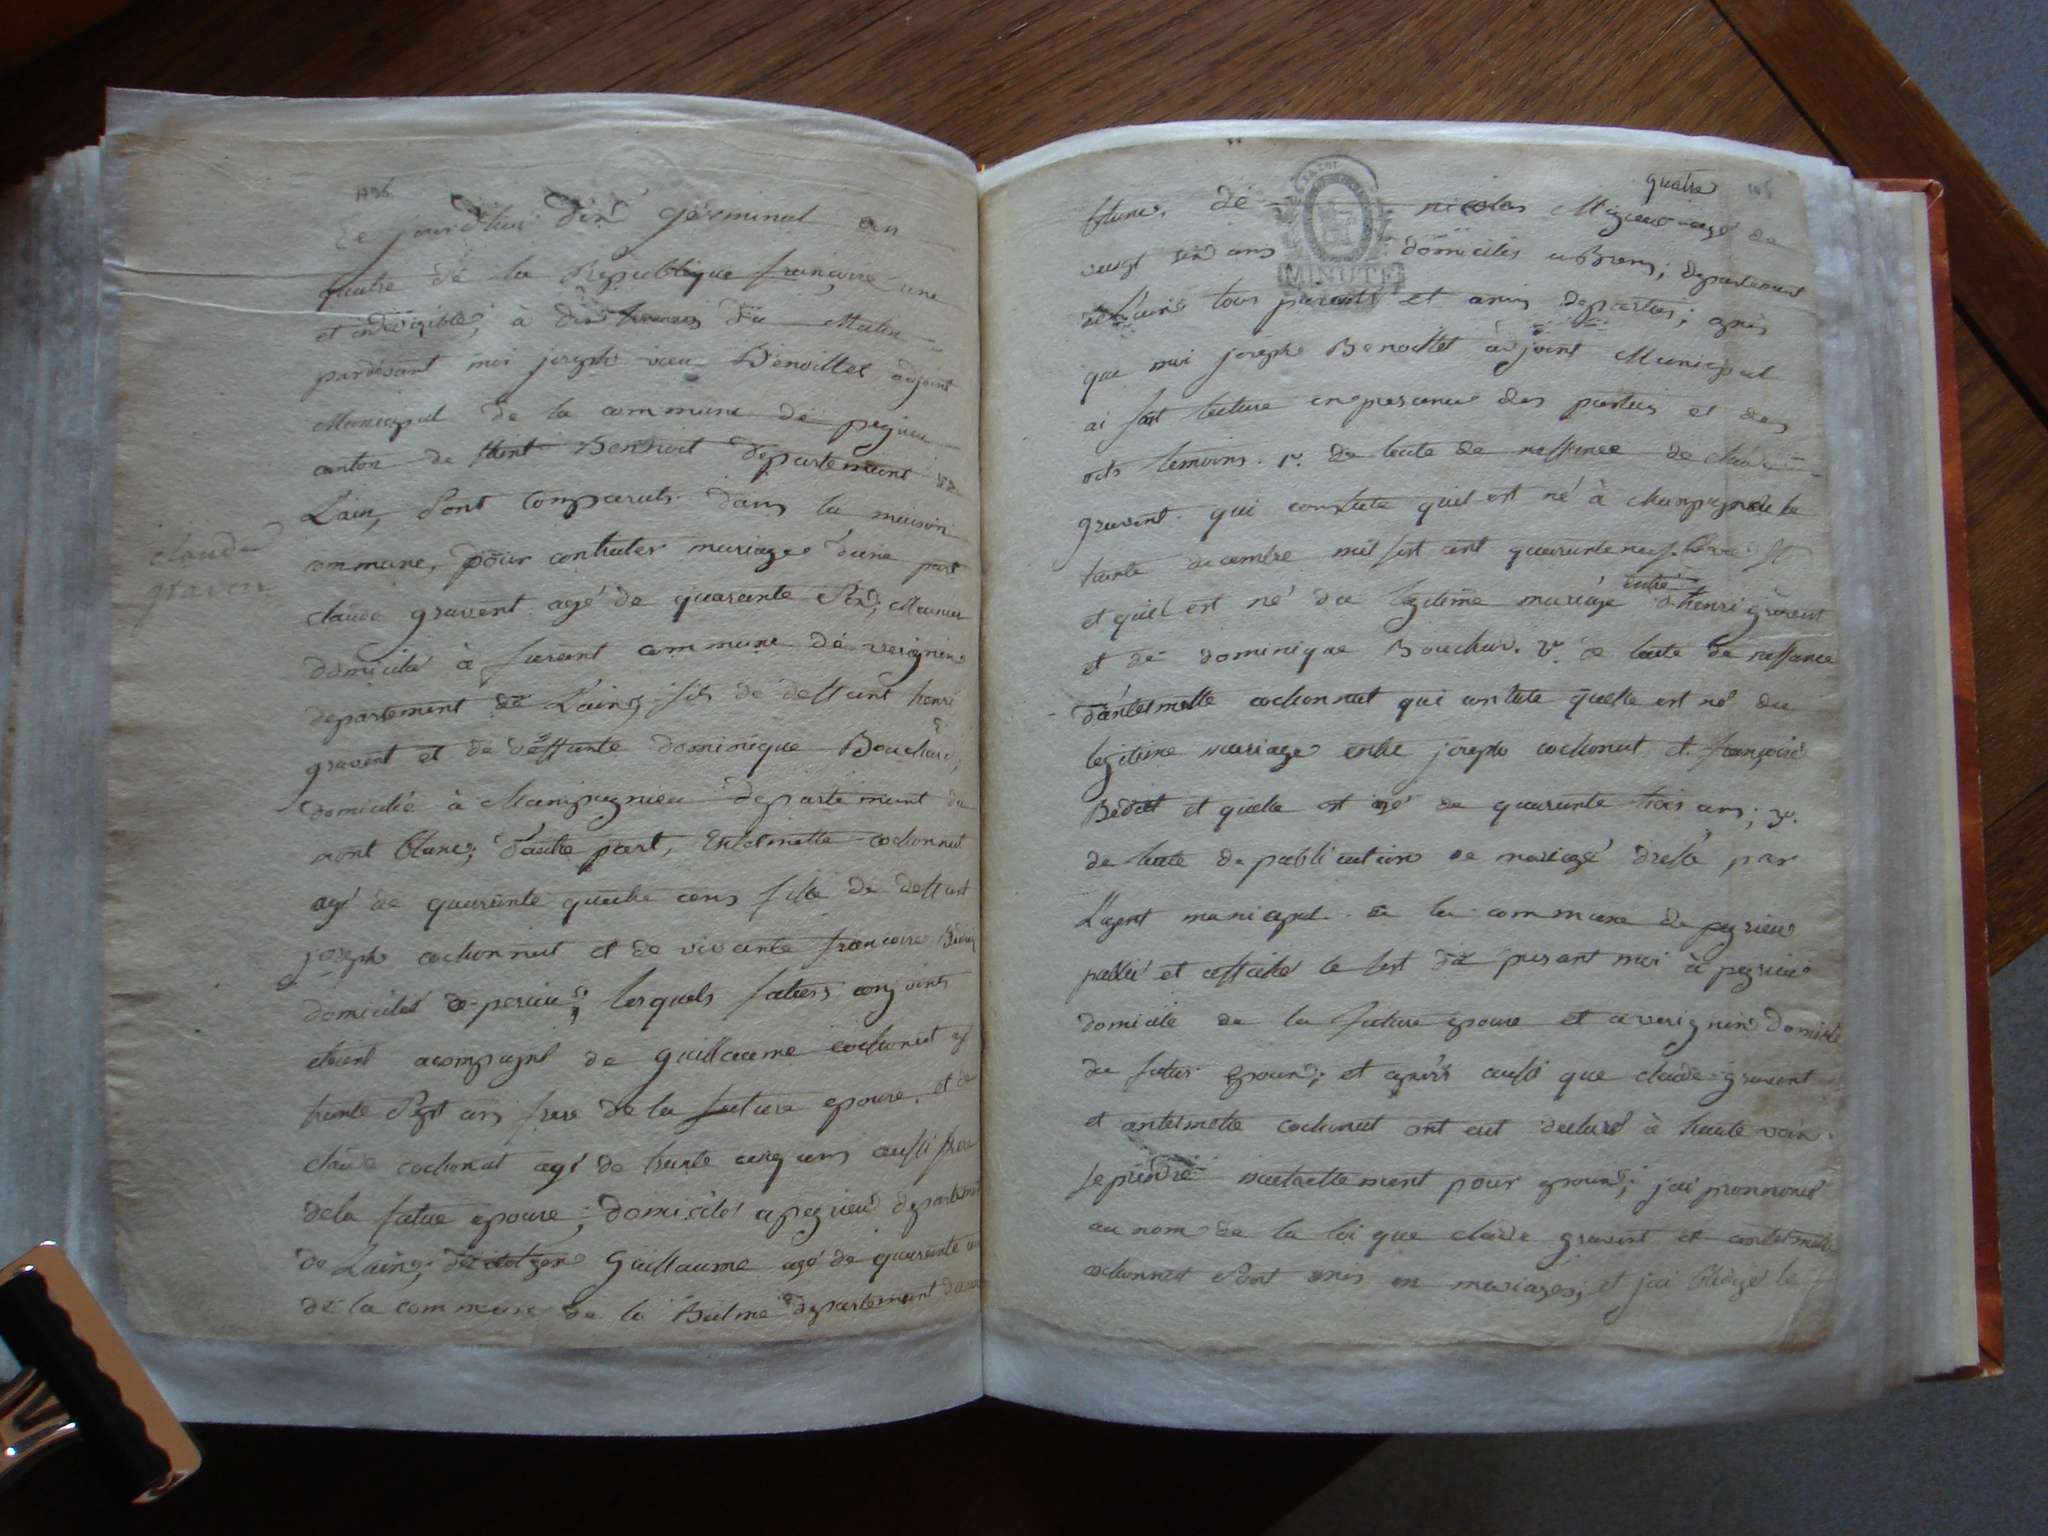 1796
Ce jourd'hui dix germinal an
quatre de la Republique francoise une
et indivisible, à dix heures du Matin
pardevant moi joseph Benoittet adjoint
Municipal de la commune de peyrieu
canton de saint Benhoit departement de
L'ain, sont comparuts dans la maison
commune, pour contracter mariage d'une part
claude gravent agé de quarante six, Meunier
domicilié à furant commune de verignin
departement de L'ain, fils de deffunt henri
gravent et de deffunte dominique Bouchard,
domicilié à Champagnieu departement du
mont blanc; d'autre part, entelmette cochonnat
agé de quarante quatre ans fille de deffunt
joseph cochonnat et de vivante francoise
domicilié de perieu; lesquels futurs conjoints
etant acompagné de guillaume cochonat
trente sept ans frere de la future epouse, et de
claude cochonat agé de trente cinq ans aussi frere
dela future epouse; domicilés a peyrieu departement
de L'ain; Guillaume agé de quarante
de la commune de la Balme departement
claude
graven
quatre
blanc. de nicolas agé de
vingt six ans domicilés a Brens; departement
de L'ain tous parents et amis des parties; apres
que moi joseph Benoittet adjoint Municipal
ai fait lecture en presence des parties et des
dits temoins. 1°. de lacte de naissance de claude
gravent. qui constate quil est né à champagnieu le
trente decembre mil sept cent quarante neuf
et quil est né du legitime mariage entre henri gravent
et de dominique Bouchard. 2°. de lacte de naissance
d'antelmette cochonnat qui constate quelle est né du
legitime mariage entre joseph cochonat et francoise
Bedat et quelle est agé de quarante trois ans; 3°.
de lacte de publication de mariage dressé par
L'agent municipal de la commune de peyrieu
publié et affiché le sept du present moi à peyrieu
domicile de la future epouse et a verignin domicile
du futur epoux; et aprés aussi que claude gravent
et antelmette cochonat ont eut declaré à haute voix
se prendre mutuellement pour epoux; j'ai prononcé
au nom de la loi que claude gravent et antelmette
cochonnat sont unis en mariages; et j'ai redigé le
MINUTE